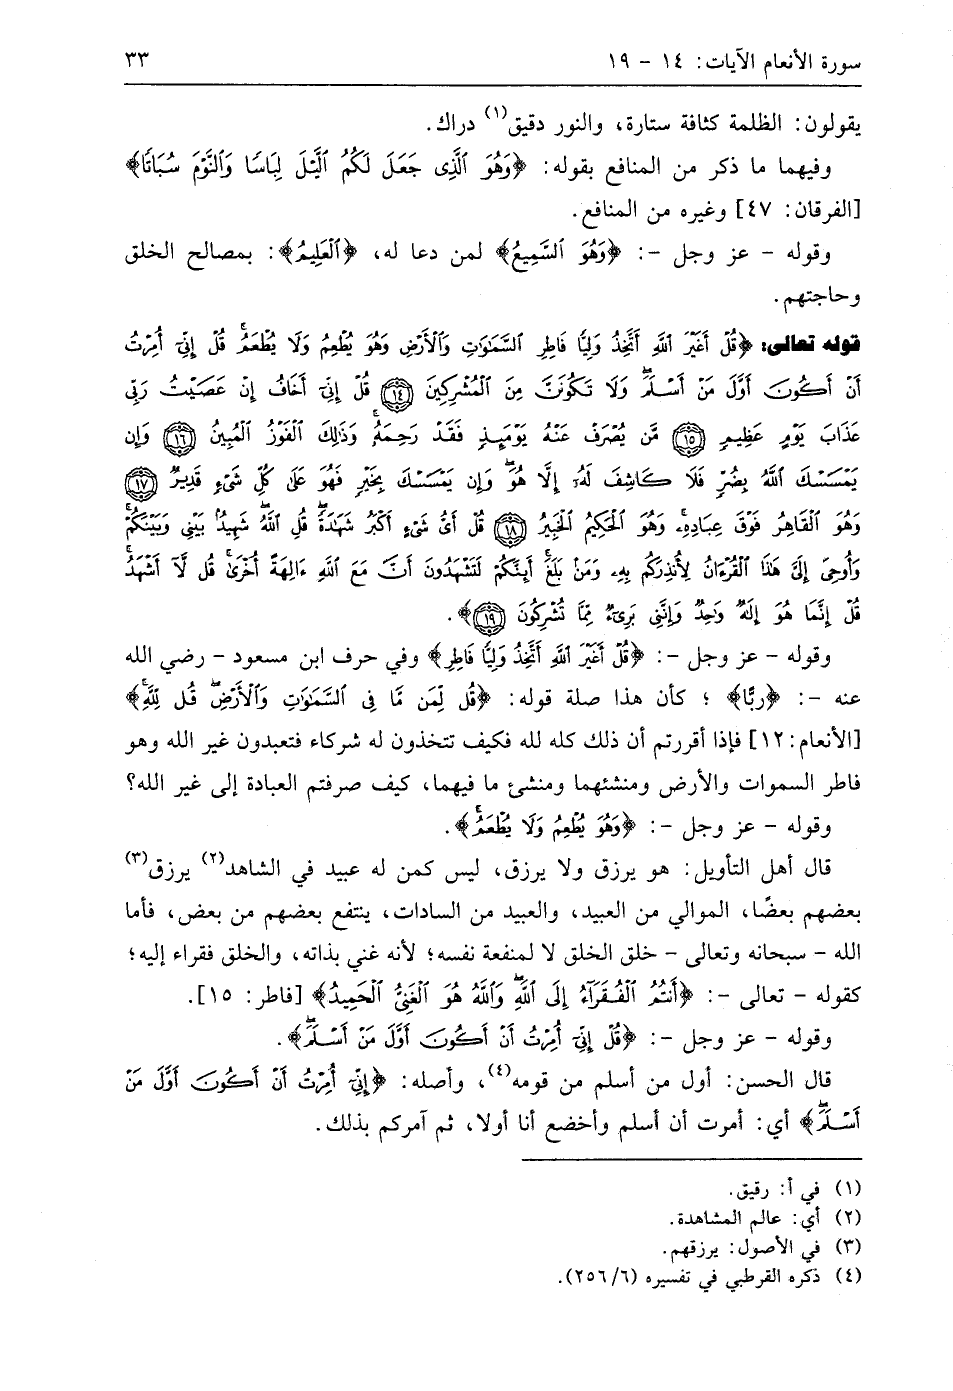 سورة الأنعام الآيات: ١٤ - ١٩ ٣٣
يقولون: الظلمة كثافة ستارة، والنور دقيق(١) دراك.
وفيهما ما ذكر من المنافع بقوله: ﴿وَهُوَ ٱلَّذِى جَعَلَ لَكُمُ ٱلَّيْلَ لِبَاسًا وَٱلنَّوْمَ سُبَاتًا﴾
[الفرقان: ٤٧] وغيره من المنافع.
وقوله - عز وجل -: ﴿وَهُوَ ٱلسَّمِيعُ﴾ لمن دعا له، ﴿ٱلْعَلِيمُ﴾: بمصالح الخلق
وحاجتهم.
قوله تعالى: ﴿قُلْ أَغَيْرَ ٱللَّهِ أَتَّخِذُ وَلِيًّا فَاطِرِ ٱلسَّمَٰوَٰتِ وَٱلْأَرْضِ وَهُوَ يُطْعِمُ وَلَا يُطْعَمُ ۗ قُلْ إِنِّىٓ أُمِرْتُ
أَنْ أَكُونَ أَوَّلَ مَنْ أَسْلَمَ ۖ وَلَا تَكُونَنَّ مِنَ ٱلْمُشْرِكِينَ ١٤ قُلْ إِنِّىٓ أَخَافُ إِنْ عَصَيْتُ رَبِّى
عَذَابَ يَوْمٍ عَظِيمٍ ١٥ مَّن يُصْرَفْ عَنْهُ يَوْمَئِذٍ فَقَدْ رَحِمَهُۥ ۚ وَذَٰلِكَ ٱلْفَوْزُ ٱلْمُبِينُ ١٦ وَإِن
يَمْسَسْكَ ٱللَّهُ بِضُرٍّ فَلَا كَاشِفَ لَهُۥٓ إِلَّا هُوَ ۖ وَإِن يَمْسَسْكَ بِخَيْرٍ فَهُوَ عَلَىٰ كُلِّ شَىْءٍ قَدِيرٌ ١٧
وَهُوَ ٱلْقَاهِرُ فَوْقَ عِبَادِهِۦ ۚ وَهُوَ ٱلْحَكِيمُ ٱلْخَبِيرُ ١٨ قُلْ أَىُّ شَىْءٍ أَكْبَرُ شَهَٰدَةً ۖ قُلِ ٱللَّهُ ۖ شَهِيدٌۢ بَيْنِى وَبَيْنَكُمْ ۚ
وَأُوحِىَ إِلَىَّ هَٰذَا ٱلْقُرْءَانُ لِأُنذِرَكُم بِهِۦ وَمَنۢ بَلَغَ ۚ أَئِنَّكُمْ لَتَشْهَدُونَ أَنَّ مَعَ ٱللَّهِ ءَالِهَةً أُخْرَىٰ ۚ قُل لَّآ أَشْهَدُ ۚ
قُلْ إِنَّمَا هُوَ إِلَٰهٌ وَٰحِدٌ وَإِنَّنِى بَرِىٓءٌ مِّمَّا تُشْرِكُونَ ١٩﴾.
وقوله - عز وجل -: ﴿قُلْ أَغَيْرَ ٱللَّهِ أَتَّخِذُ وَلِيًّا فَاطِرِ﴾ وفي حرف ابن مسعود - رضي الله
عنه -: ﴿ربًّا﴾ ؛ كأن هذا صلة قوله: ﴿قُل لِّمَن مَّا فِى ٱلسَّمَٰوَٰتِ وَٱلْأَرْضِ ۖ قُل لِّلَّهِ ۚ﴾
[الأنعام: ١٢] فإذا أقررتم أن ذلك كله لله فكيف تتخذون له شركاء فتعبدون غير الله وهو
فاطر السموات والأرض ومنشئهما ومنشئ ما فيهما، كيف صرفتم العبادة إلى غير الله؟
وقوله - عز وجل -: ﴿وَهُوَ يُطْعِمُ وَلَا يُطْعَمُ ۗ﴾.
قال أهل التأويل: هو يرزق ولا يرزق، ليس كمن له عبيد في الشاهد(٢) يرزق(٣)
بعضهم بعضًا، الموالي من العبيد، والعبيد من السادات، ينتفع بعضهم من بعض، فأما
الله - سبحانه وتعالى - خلق الخلق لا لمنفعة نفسه؛ لأنه غني بذاته، والخلق فقراء إليه؛
كقوله - تعالى -: ﴿أَنتُمُ ٱلْفُقَرَآءُ إِلَى ٱللَّهِ ۖ وَٱللَّهُ هُوَ ٱلْغَنِىُّ ٱلْحَمِيدُ﴾ [فاطر: ١٥].
وقوله - عز وجل -: ﴿قُلْ إِنِّىٓ أُمِرْتُ أَنْ أَكُونَ أَوَّلَ مَنْ أَسْلَمَ ۖ﴾.
قال الحسن: أول من أسلم من قومه(٤)، وأصله: ﴿إِنِّىٓ أُمِرْتُ أَنْ أَكُونَ أَوَّلَ مَنْ
أَسْلَمَ ۖ﴾ أي: أمرت أن أسلم وأخضع أنا أولا، ثم آمركم بذلك.
(١) في أ: رقيق.
(٢) أي: عالم المشاهدة.
(٣) في الأصول: يرزقهم.
(٤) ذكره القرطبي في تفسيره (٦/ ٢٥٦).